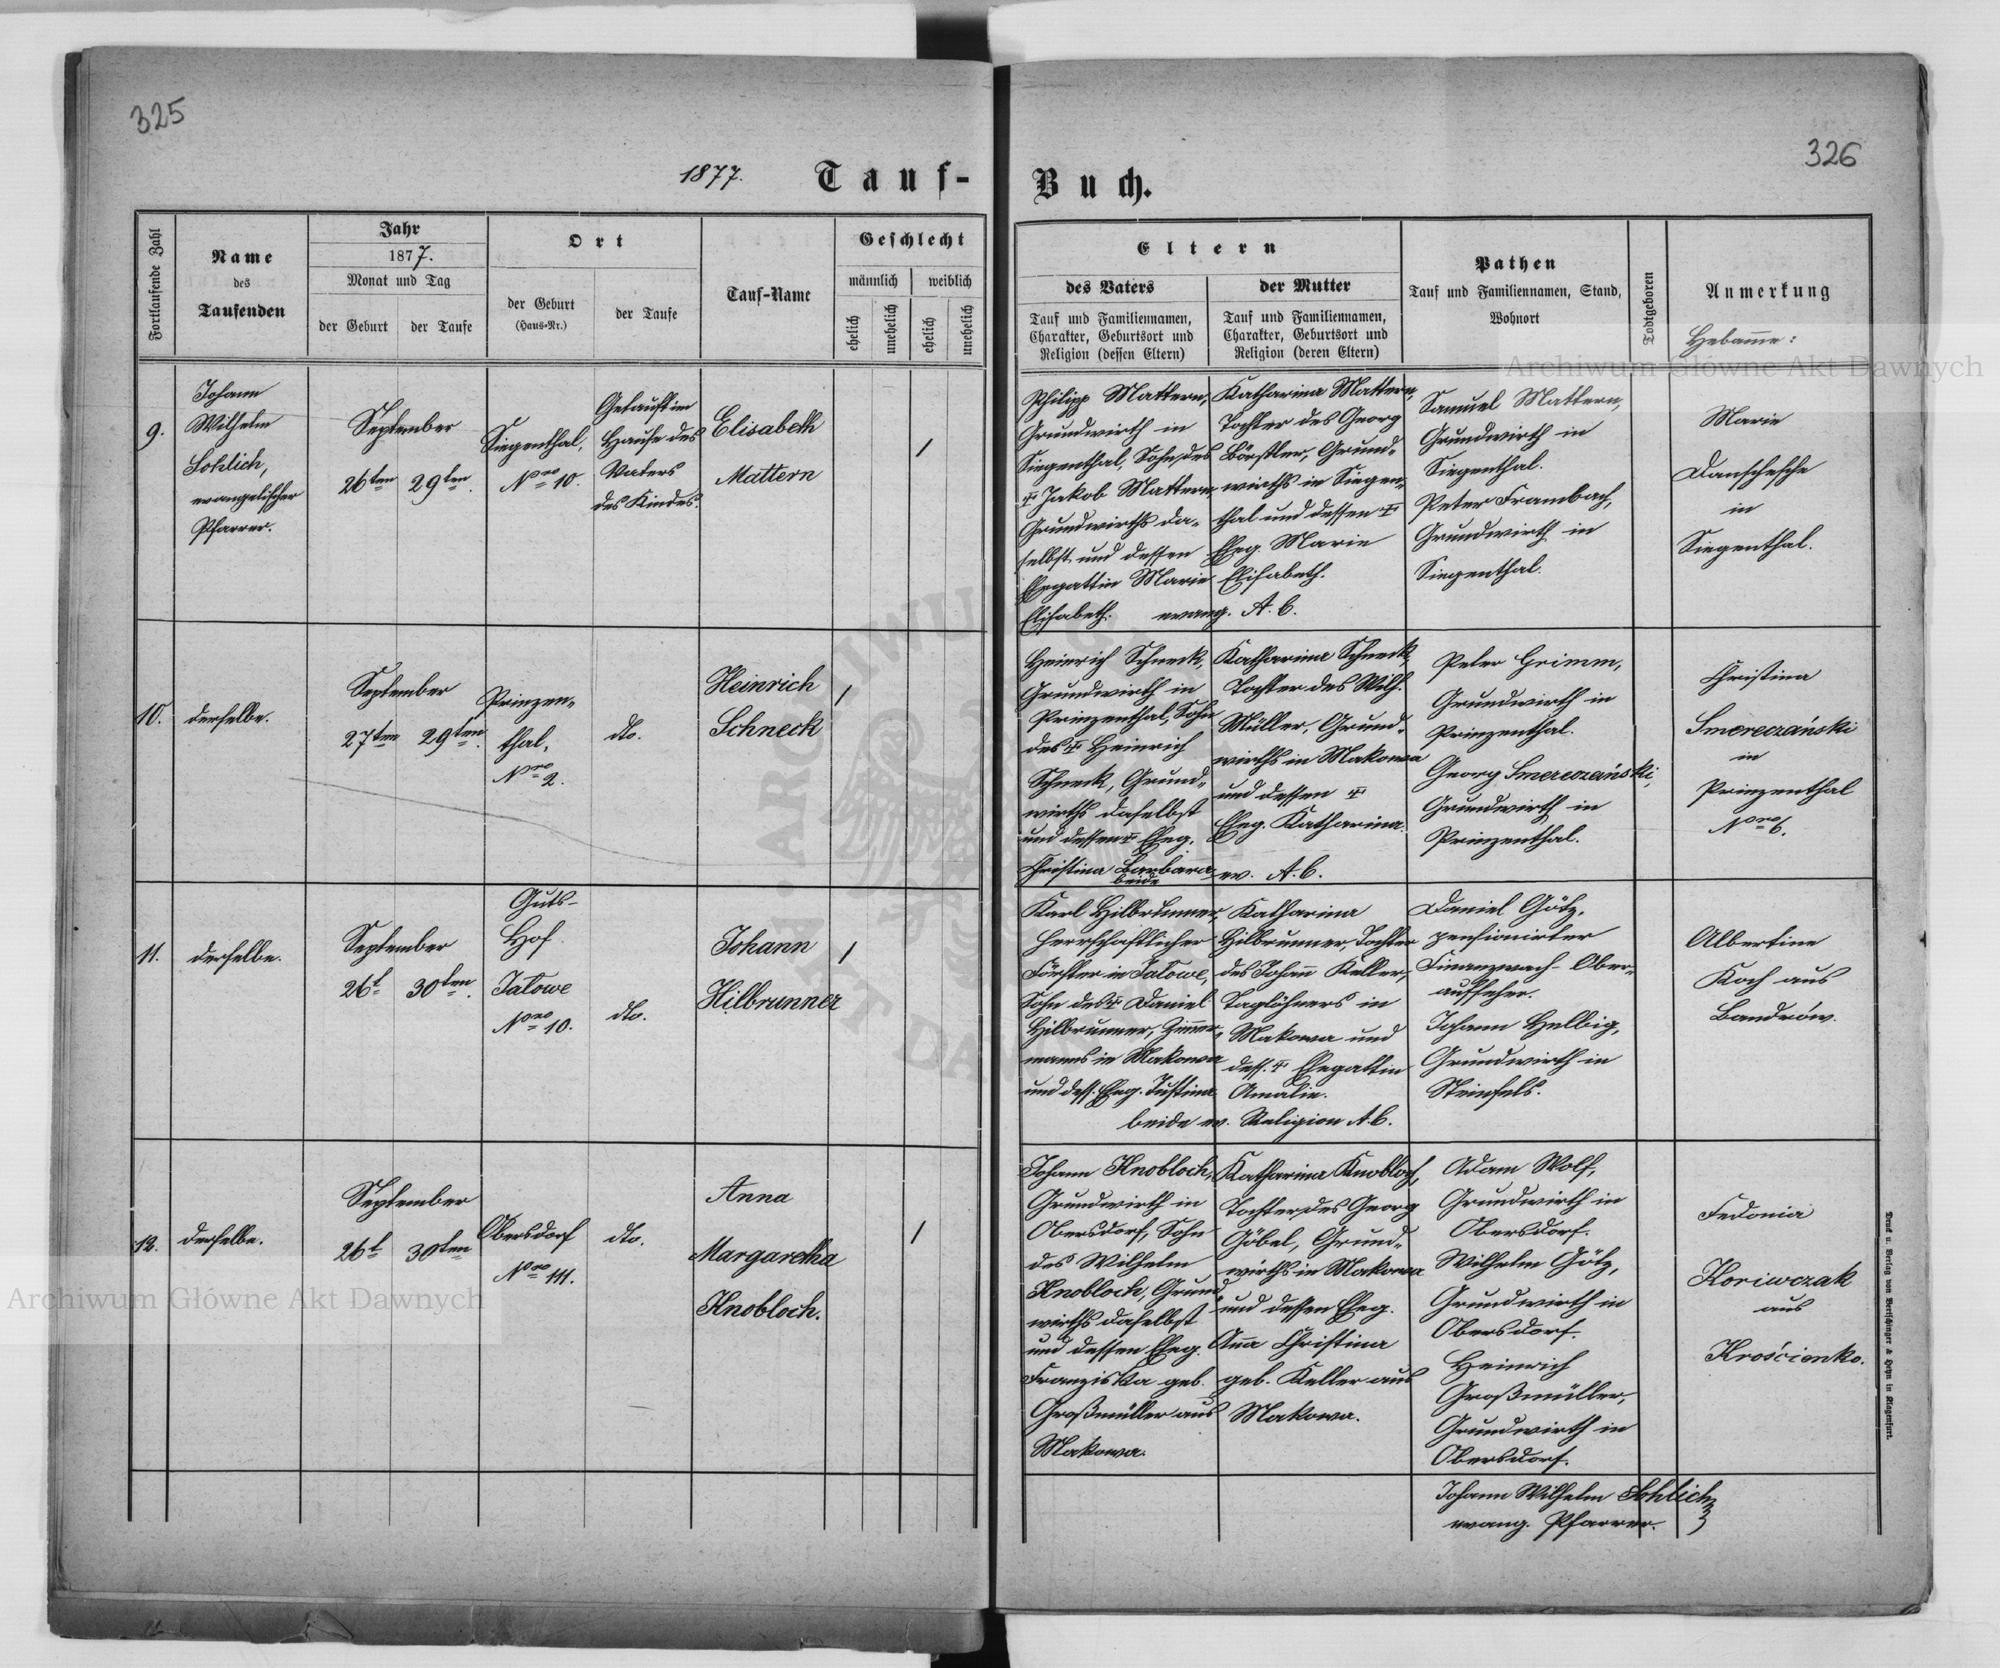 325
326
1877.
Tauf-
Buch.
Fortlaufende Zahl
Name
des
Taufenden
Jahr
1877.
Monat und Tag
der Geburt
der Taufe
Ort
der Geburt
(Haus-Nr.)
der Taufe
Tauf-Name
Geschlecht
männlich
weiblich
ehelich
unehelich
ehelich
unehelich
Eltern
des Vaters
Tauf und Familiennamen,
Charakter, Geburtsort und
Religion (dessen Eltern)
der Mutter
Tauf und Familiennamen,
Charakter, Geburtsort und
Religion (deren Eltern)
Pathen
Tauf und Familiennamen, Stand,
Wohnort
Todtgeboren
Anmerkung
Hebamme:
9.
Johann
Wilhelm
Sohlich,
evangelischer
Pfarrer.
September
26ten
29ten.
Siegenthal,
Nro 10.
Getauft im
Hause des
Vaters
des Kindes.
Elisabeth
Mattern
/
Philipp Mattern,
Grundwirth in
Siegenthal, Sohn des
Jakob Mattern,
Grundwirths da-
selbst und dessen
Ehegattin Marie
Elisabeth.
Katharina Mattern,
Tochter des Georg
Börstler, Grund-
wirths in Siegen-
thal und dessen
Eheg. Marie
Elisabeth.
evang. A. C.
Samuel Mattern,
Grundwirth in
Siegenthal.
Peter Frambach,
Grundwirth in
Siegenthal.
Marie
Danschesche
in
Siegenthal.
10.
derselbe.
September
27ten
29ten.
Prinzen-
thal,
Nro 2.
dto.
Heinrich
Schneck
/
Heinrich Schneck,
Grundwirth in
Prinzenthal, Sohn
des Heinrich
Schneck, Grund-
wirths daselbst
und dessen Eheg.
Christina Barbara
beide
Katharina Schneck,
Tochter des Wilh.
Müller, Grund-
wirths in Makowa
und dessen
Eheg. Katharina.
ev. A. C.
Peter Grimm,
Grundwirth in
Prinzenthal.
Georg Smereczański,
Grundwirth in
Prinzenthal.
Christina
Smereczański
in
Prinzenthal
Nro 6.
11.
derselbe.
September
26t
30ten.
Guts-
Hof
Jalowe
Nro 10.
dto.
Johann
Hilbrunner
/
Karl Hilbrunner,
herrschaftlicher
Förster in Jalowe,
Sohn des Daniel
Hilbrunner, Zimmer-
manns in Makowa
und dess. Eheg. Justina
Katharina
Hilbrunner, Tochter
des Johann Keller,
Taglöhners in
Makowa und
dess. Ehegattin
Amalie.
beide ev. Religion A. C.
Daniel Götz,
pensionirter
Finanzwach-Ober-
aufseher.
Johann Helbig,
Grundwirth in
Steinfels.
Albertine
Koch aus
Bandrów.
12.
derselbe.
September
26t
30ten
Obersdorf
Nro 111.
dto.
Anna
Margaretha
Knobloch.
/
Johann Knobloch,
Grundwirth in
Obersdorf, Sohn
des Wilhelm
Knobloch, Grund-
wirths daselbst
und dessen Eheg.
Franziska geb.
Großmüller aus
Makowa.
Katharina Knobloch,
Tochter des Georg
Göbel, Grund-
wirths in Makowa
und dessen Eheg.
Anna Christina
geb. Keller aus
Makowa.
Adam Wolf,
Grundwirth in
Obersdorf.
Wilhelm Götz,
Grundwirth in
Obersdorf.
Heinrich
Großmüller,
Grundwirth in
Obersdorf.
Fedonia
Koriwczak
aus
Krościenko.
Johann Wilhelm Sohlich
evang. Pfarrer.
Druck u. Verlag von Bertschinger & Heyn in Klagenfurt.
Archiwum Główne Akt Dawnych
Archiwum Główne Akt Dawnych